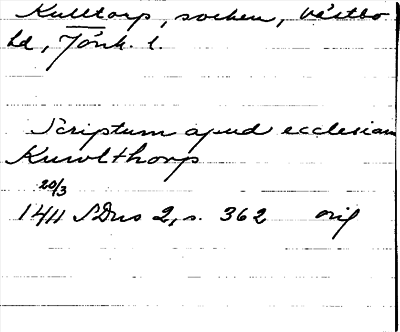 Kulltorp, socken, Västbo
hd, Jönk. l.
Scriptum apud ecclesiam
Kuwlthorp
20/3
1411 SDns 2, s. 362 orig